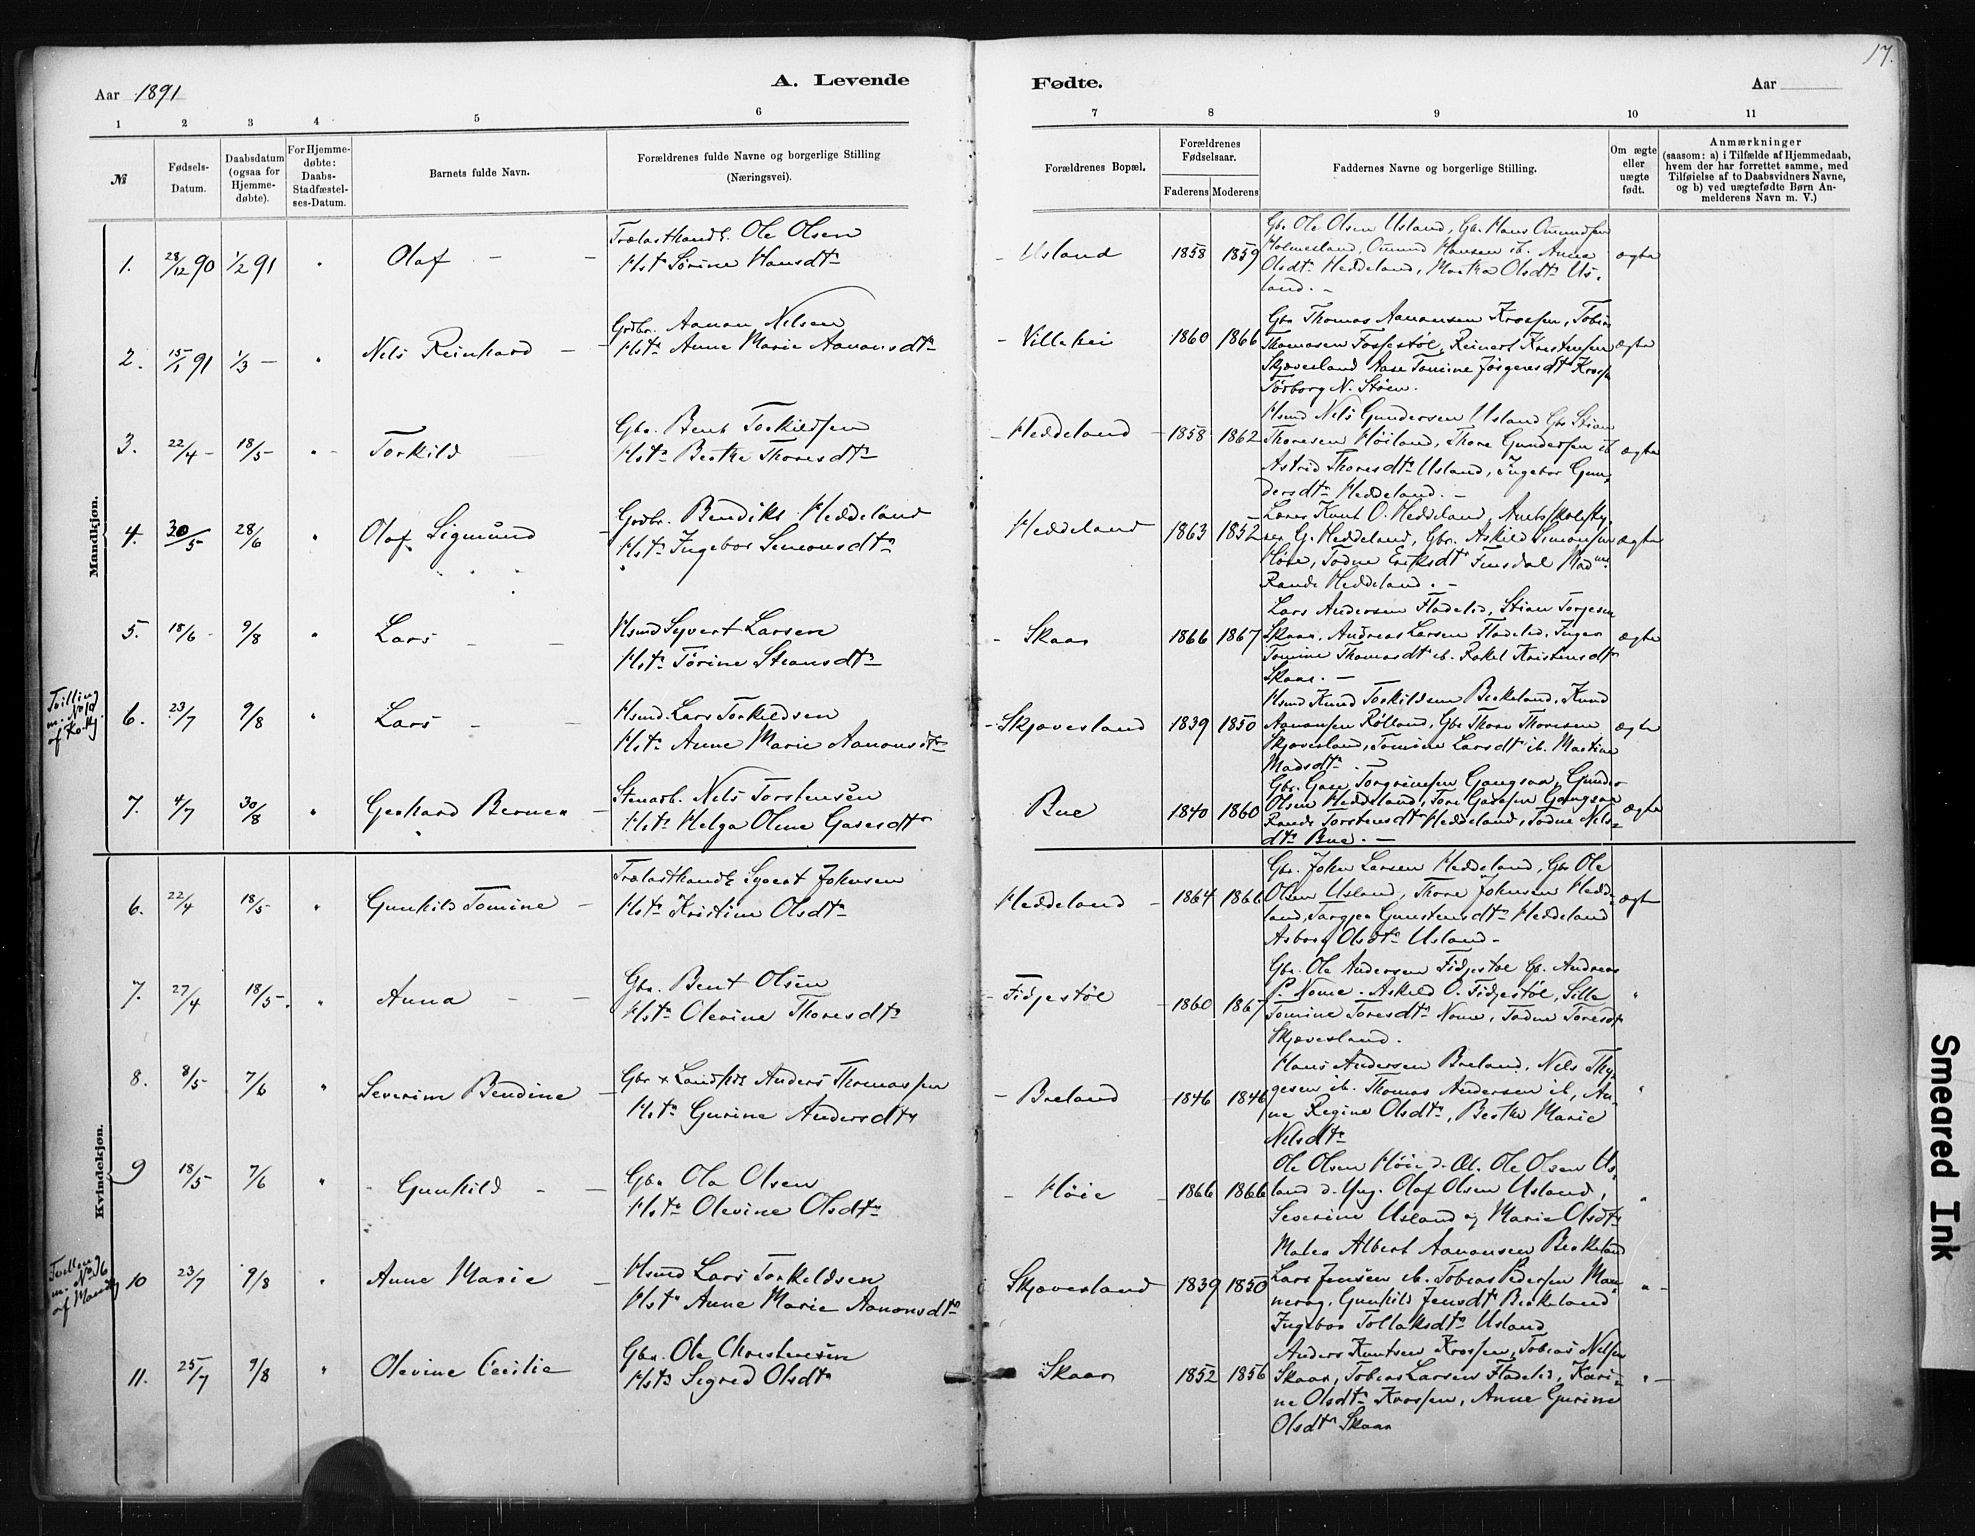 17.
Aar 1891
A. Levende
Fødte.
Aar
1 2 3 4 5 6 7 8 9 10 11
№
Fødsels-
Datum.
Daabsdatum
(ogsaa for
Hjemme-
døbte).
For Hjemme-
døbte:
Daabs-
Stadfæstel-
ses-Datum.
Barnets fulde Navn.
Forældrenes fulde Navne og borgerlige Stilling
(Næringsvei).
Forældrenes Bopæl.
Forældrenes
Fødselsaar.
Faderens Moderens
Faddernes Navne og borgerlige Stilling.
Om ægte
eller
uægte
født.
Anmærkninger
(saasom: a) i Tilfælde af Hjemmedaab,
hvem der har forrettet samme, med
Tilføielse af to Daabsvidners Navne,
og b) ved uægtefødte Børn An-
melderens Navn m. V.)
Mandkjøn.
1. 28/12 90 1/2 91 " Olaf
Trælasthandl. Ole Olsen
Hst. Sørine Hansdtr
Usland 1858 1859
Gbr Ole Olsen Usland, Gbr. Hans Omundsen
Holmesland, Omund Hansen ib. Anna
Olsdtr Heddeland, Martha Olsdtr Us-
land. -
ægte
2. 15/1 91 1/3 - " Nils Reinhard
Grdbr. Aanon Nilsen
Hstr Anne Marie Aanonsdtr
Villehei 1860 1866
Gbr Thomas Aanansen Krossen, Tobias
Thomasen Fossestøl, Reinert Kristensen
Skjævesland Aase Tomine Jørgensdtr Kross.
Tørborg N. Støen.
ægte
3. 22/4 - 18/5 - " Torkild
Gbr. Bent Torkildsen
Hstr Berthe Thoresdtr
Heddeland 1858 1862
Hsmd Nils Gundersen Usland Gbr Stian
Thoresen Høiland, Thore Gundersen ib
Astrid Thoresdtr Usland, Ingebor Gun-
dersdtr Heddeland. -
ægte
4. 30/5 28/6 " Olaf Sigmund
Grdbr. Bendiks Heddeland
Hstr Ingebor Simonsdtr
Heddeland 1863 1852
Lærer Knut O. Heddeland, Amtsskolesty-
rer G. Heddeland, Gbr. Askild Simonsen
Høie, Todne Eriksdtr Finsdal Mad
Rande Heddeland. -
ægte
5. 18/6 - 9/8 " Lars
Hsmd Syvert Larsen
Hstr Tørine Stiansdtr
Skaar 1866 1867
Lars Andersen Fladelid, Stian Torjesen
Skaar, Andreas Larsen Fladelid, Inger
Tomine Thomasdtr ib. Rakel Kristensdtr
Skaar. -
ægte
Tvilling
m. No 10
af Kvkj.
6. 23/7 9/8 " Lars
Hsmd. Lars Torkildsen
Hstr Anne Marie Aanonsdtr
Skjævesland 1839 1850
Hsmd Knud Torkildsen Birkeland, Knud
Aanonsen Rølland, Gbr Thore Thoresen
Skjævesland, Tomine Larsdtr ib. Martine
Madsdtr. -
ægte
7. 4/7 30/8 " Gerhard Berner
Stenarb. Nils Torstensen
Hstr Helga Oline Gasesdtr
Bue 1840 1860
Gbr. Gase Torgrimsen Gangsaa, Gunder
Olsen Heddeland, Tore Gasesen Gangsaa
Rande Torstensdtr Heddeland, Todne Nils-
dtr Bue. -
ægte
Kvindekjøn.
6. 22/4 18/5 " Gunhild Tomine
Trælasthandl. Syvert Johnsen
Hstr Kristine Olsdtr
Heddeland 1864 1866
Gbr. John Larsen Heddeland, Gbr Ole
Olsen Usland, Thore Johnsen Hedde-
land, Targjer Gunstensdtr Heddeland
Asborg Olsdtr Usland -
ægte
7. 27/4 18/5. " Anna
Gbr. Bent Olsen
Hstr Olevine Thoresdtr
Fidjestøl 1860 1867
Gbr. Ole Andersen Fidjestøl Gb. Andreas
P. Nome. Askild O. Fidjestøl, Sille
Tomine Toresdtr Nome, Todne Toresdtr
Skjævesland.
"
8. 8/5 7/6 " Severine Bendine
Gbr + Landhdl Anders Thomassen
Hstr Gurine Andersdtr
Breland 1846 1846
Hans Andersen Breland, Nils Thy-
gesen ib. Thomas Andersen ib, An-
ne Regine Olsdtr, Berthe Marie
Nilsdtr
"
9 18/5 7/6 " Gunhild
Gbr Ola Olsen
Hstr Olevine Olsdtr
Høie 1866 1866
Ole Olsen Høie d. Æl. Ole Olsen Us-
land d. Yng. Olaf Olsen Usland,
Severine Usland og Marie Olsdtr
"
Tvilling
m. No 6
af Mandkj
10 23/7 9/8 " Anne Marie
Hsmd Lars Torkildsen
Hstr Anne Marie Aanonsdtr
Skjævesland 1839 1850
Maler Albert Aanonsen Birkeland
Lars Jensen ib. Tobias Pedersen Man-
nerog, Gunhild Jensdtr Birkeland
Ingebor Tollaksdtr Usland
" -
11. 25/7 9/8 " Olevine Cecilie
Gbr. Ole Christensen
Hstr Segred Olsdtr
Skaar 1852 1856
Anders Knutsen Krossen, Tobias Nilsen
Skaar, Tobias Larsen Fladelid, Kari-
ne Olsdtr Krossen, Anne Gurine
Olsdtr Skaar
" -
Smeared Ink